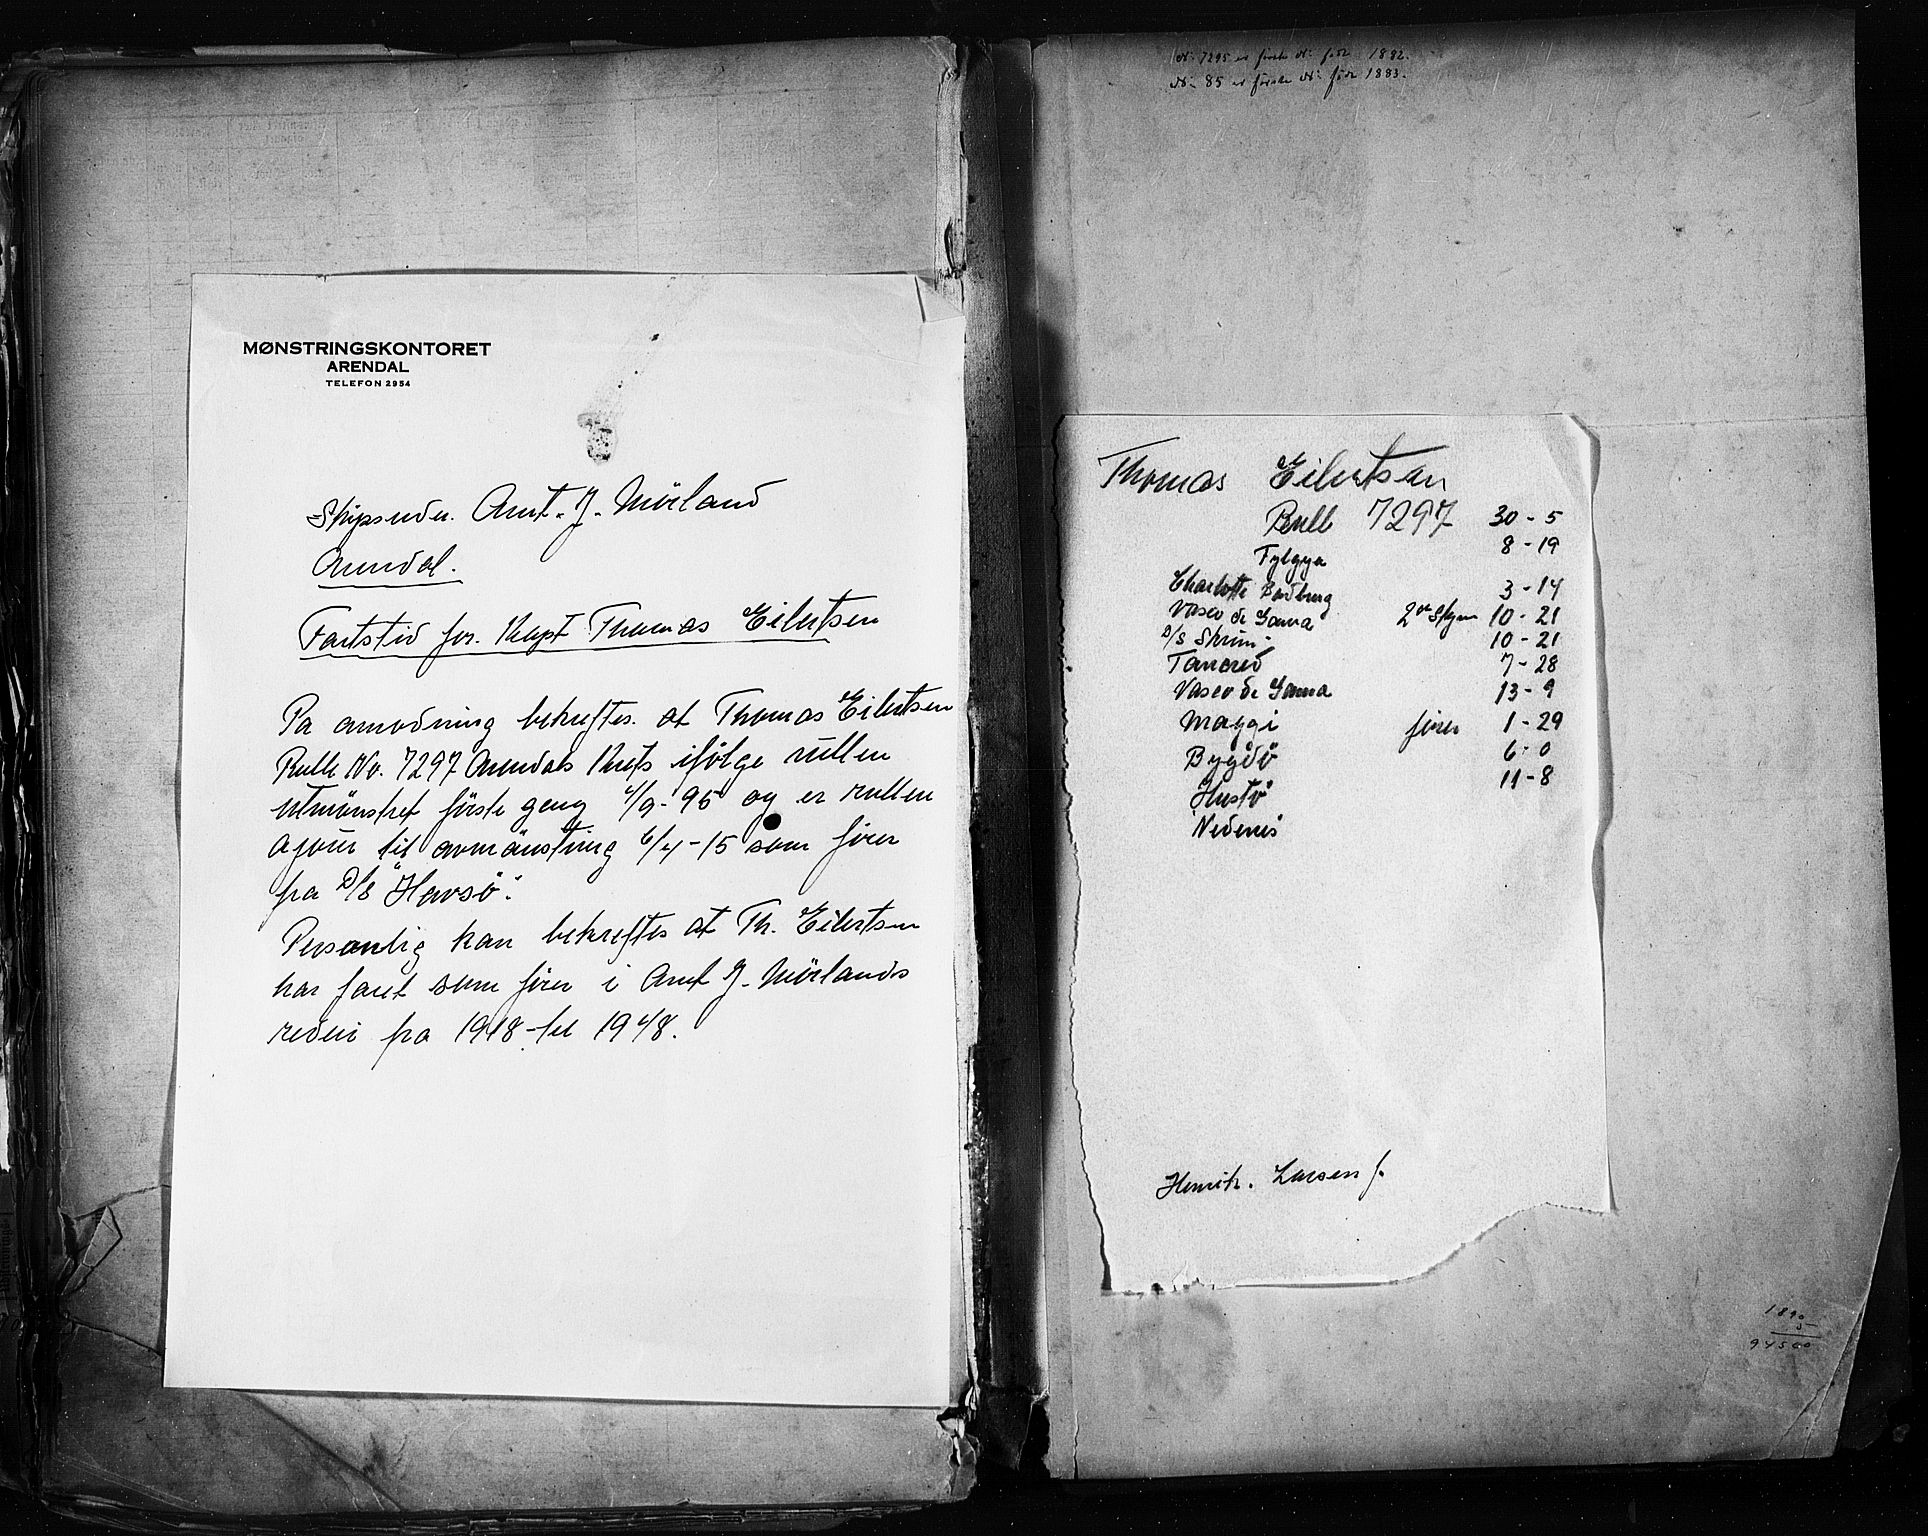 MØNSTRINGSKONTORET
ARENDAL
TELEFON 2954
Skipsreder. Arnt. J. Mörland
Arendal.
Fartstid for. Kapt Thomas Eilertsen
Pa anmodning bekreftes. at Thomas Eilertsen
Rulle No. 7297 Arendals Krets ifölge rullen
utmönstret förste gang 4/9-95 og er rullen
ajour til avmönstring 6/4-15 som förer
fra D/S "Havsö".
Personlig kan bekreftes at Th. Eilertsen
har faret som förer i Arnt J. Mörlands
rederi fra 1918-til 1948.
N: 7295 er förste N: född 1882.
N: 85 er förste N: född 1883.
Thomas Eilertsen
Rull 7297 30-5
Fylgya 8-19
Charlotte 3-14
Vasco de Gama 2den Styrm 10-21
D/S Skrim 10-21
Tancred 7-28
Vasco de Gama 13-9
Maggi förer 1-29
Bygdö 6-0
Havsö 11-8
Nedenes
Henrik. Larsen f.
1890
5
94500